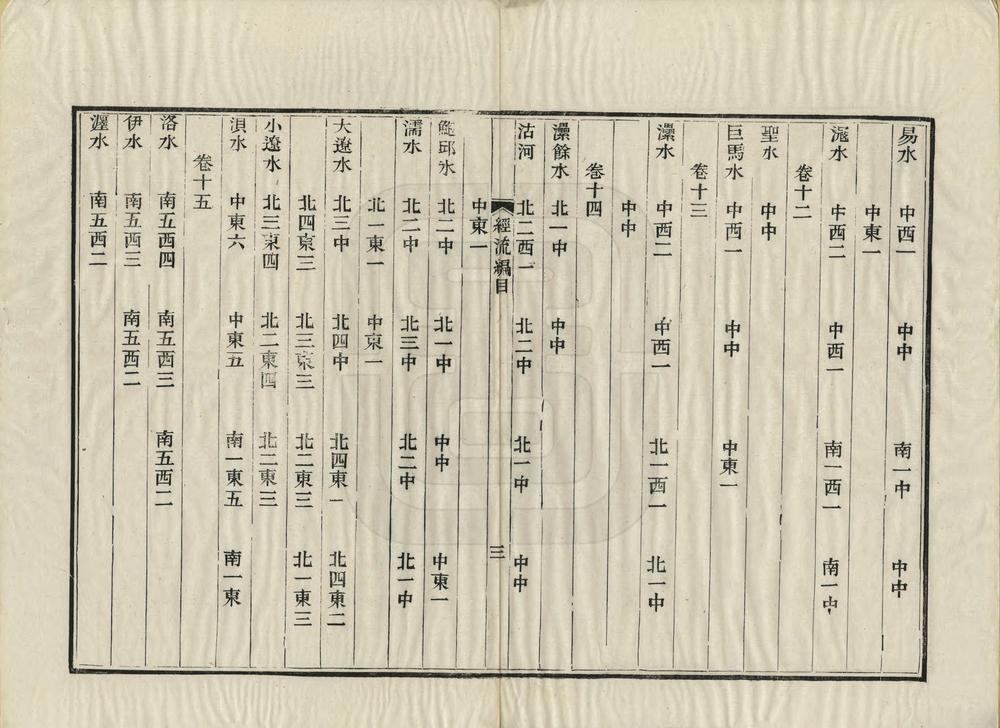 易水 中西一 中中 南一中 中中
中東一
滱水 中西二 中西一 南一西一 南一中
卷十二
聖水 中中
巨馬水 中西一 中中 中東一
卷十三
㶟水 中西二 中西一 北一西一 北一中
中中
卷十四
㶟餘水 北一中 中中
沽河 北二西一 北二中 北一中 中中
經流編目 三
中東一
鮑邱水 北二中 北一中 中中 中東一
濡水 北二中 北三中 北二中 北一中
北一東一 中東一
大遼水 北三中 北四中 北四東一 北四東二
北四東三 北三東三 北二東三 北一東三
小遼水 北三東四 北二東四 北二東三
浿水 中東六 中東五 南一東五 南一東
卷十五
洛水 南五西四 南五西三 南五西二
伊水 南五西三 南五西二
瀍水 南五西二